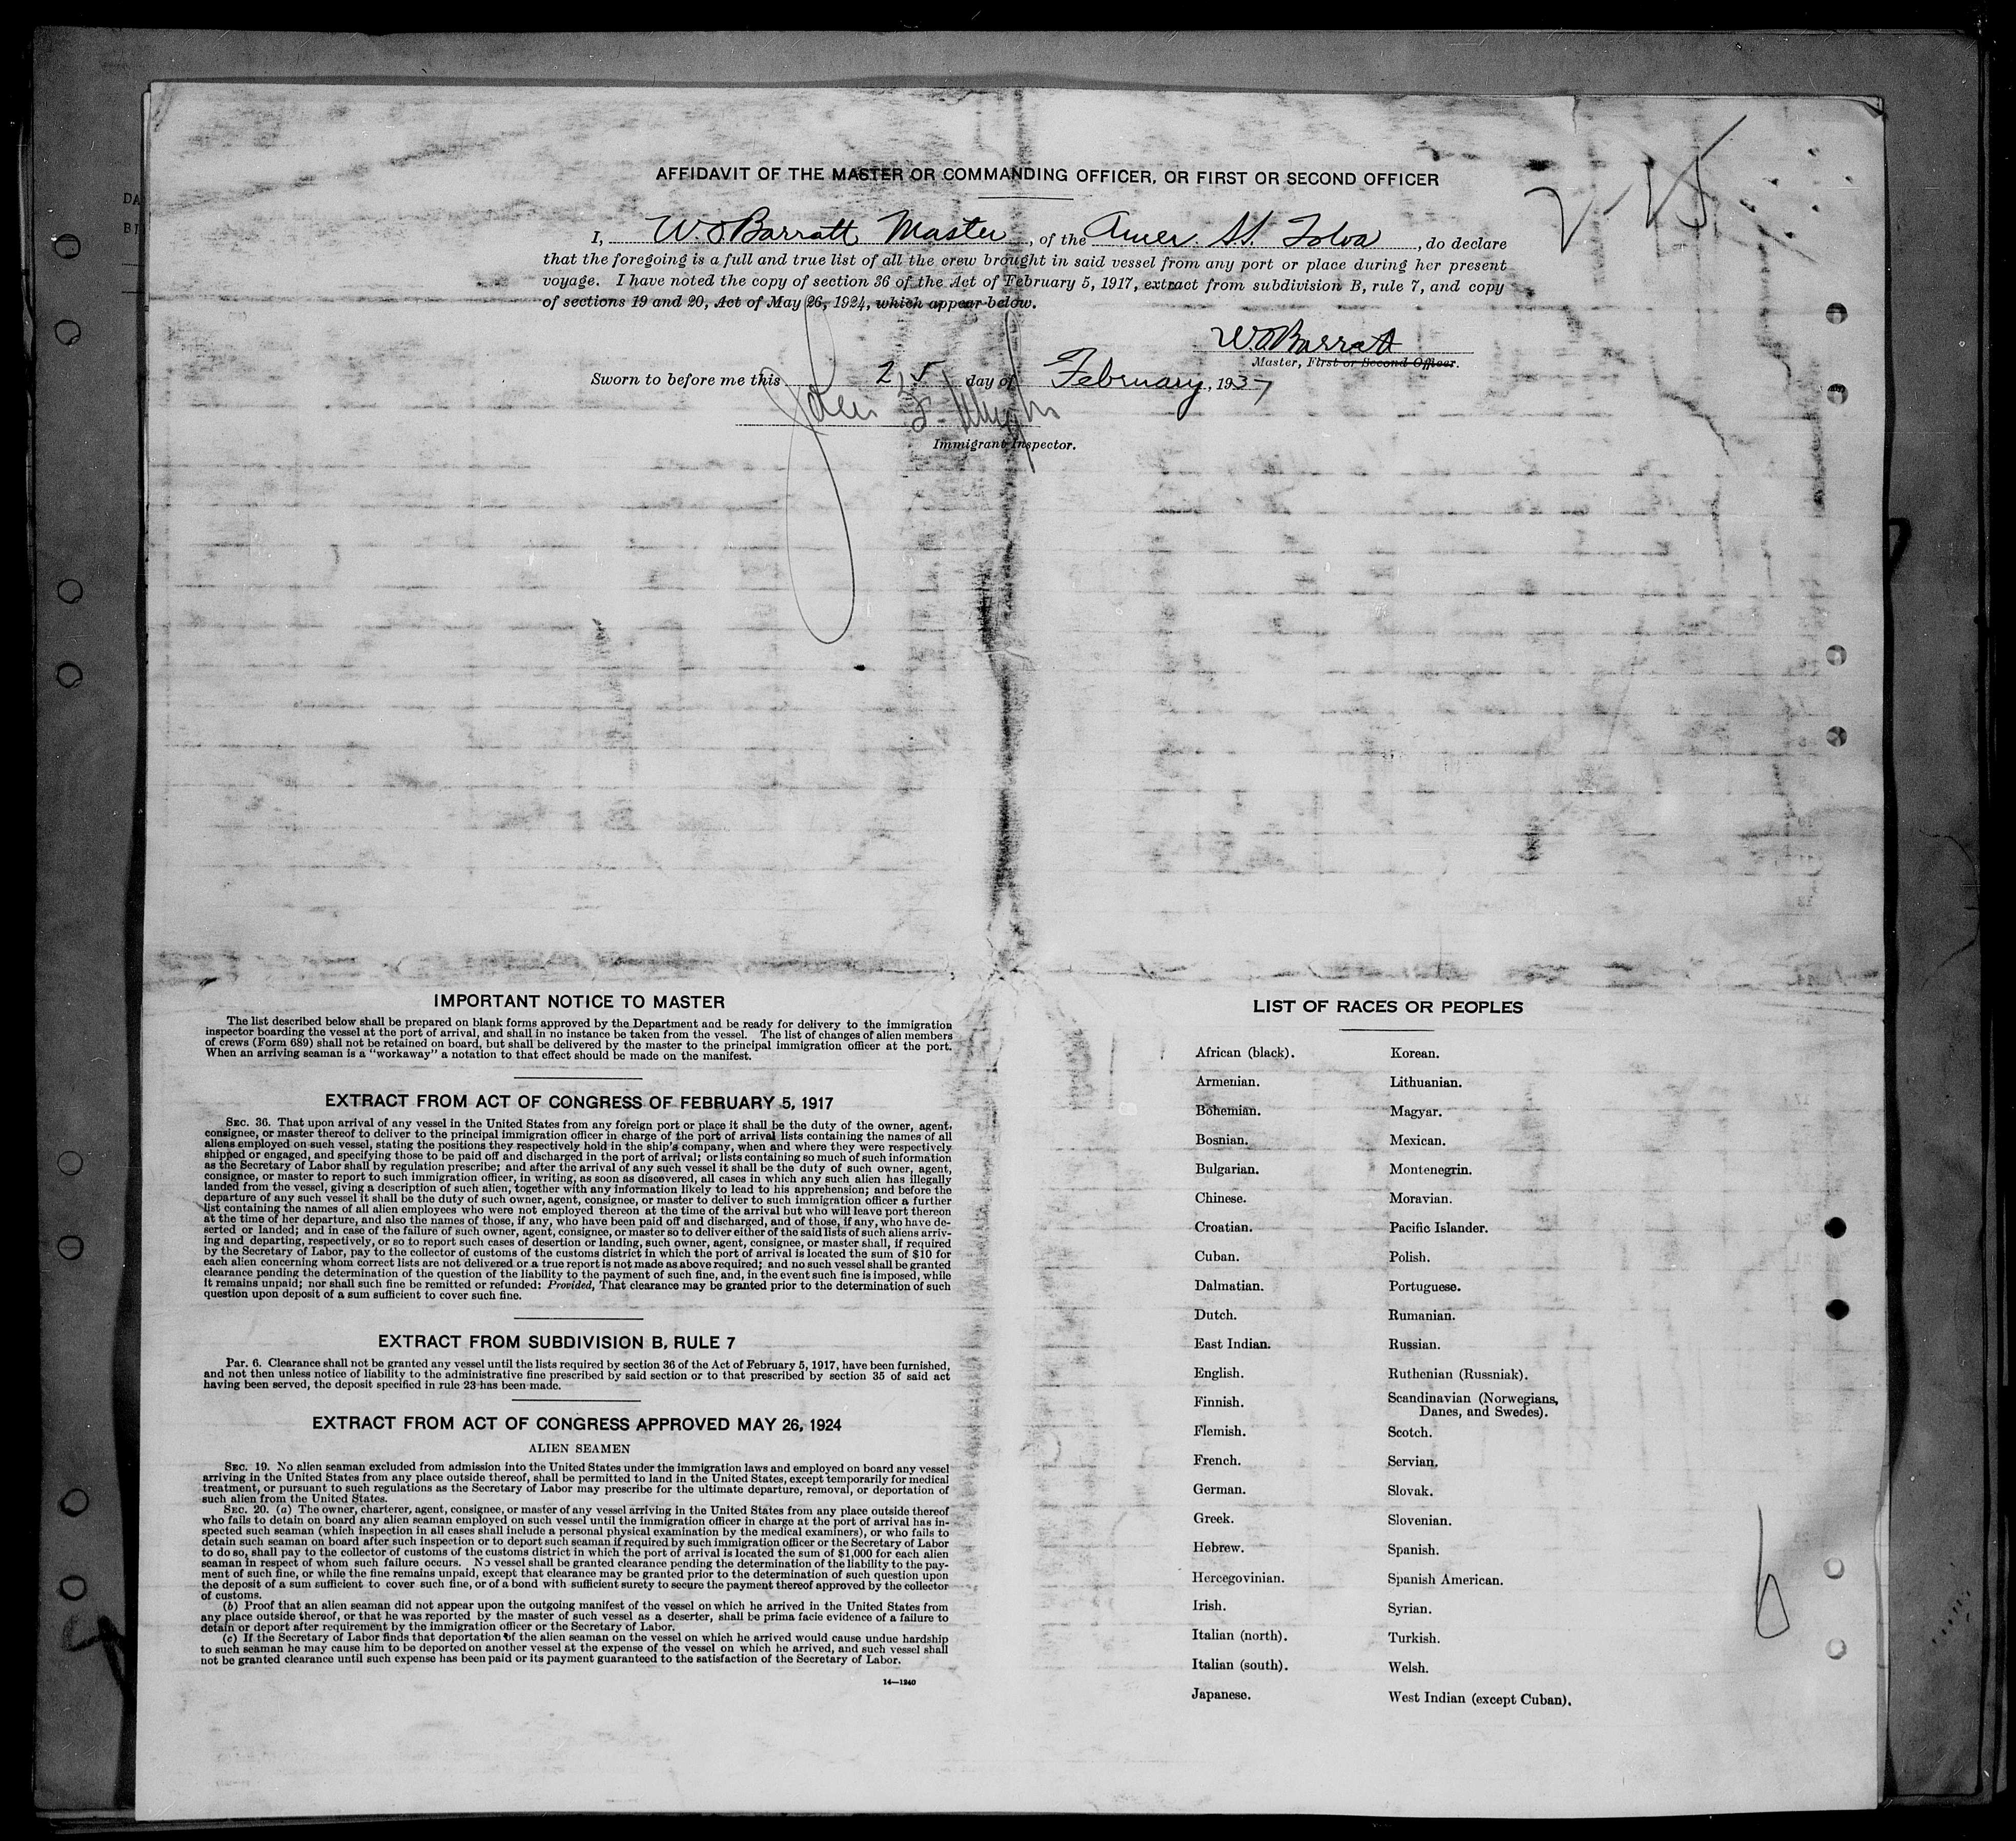 DA
BI
AFFIDAVIT OF THE MASTER OR COMMANDING OFFICER, OR FIRST OR SECOND OFFICER
I, W. J Barratt, Master, of the Amer. S.S. Tolva, do declare
that the foregoing is a full and true list of all the crew brought in said vessel from any port or place during her present
voyage. I have noted the copy of section 36 of the Act of February 5, 1917, extract from subdivision B, rule 7, and copy
of sections 19 and 20, Act of May 26, 1924, which appear below.
W J Barratt
Master, First or Second Officer.
Sworn to before me this 25 day of February, 1937
Immigrant Inspector.
IMPORTANT NOTICE TO MASTER
The list described below shall be prepared on blank forms approved by the Department and be ready for delivery to the immigration
inspector boarding the vessel at the port of arrival, and shall in no instance be taken from the vessel. The list of changes of alien members
of crews (Form 689) shall not be retained on board, but shall be delivered by the master to the principal immigration officer at the port.
When an arriving seaman is a "workaway" a notation to that effect should be made on the manifest.
EXTRACT FROM ACT OF CONGRESS OF FEBRUARY 5, 1917
SEC. 36. That upon arrival of any vessel in the United States from any foreign port or place it shall be the duty of the owner, agent,
consignee, or master thereof to deliver to the principal immigration officer in charge of the port of arrival lists containing the names of all
aliens employed on such vessel, stating the positions they respectively hold in the ship's company, when and where they were respectively
shipped or engaged, and specifying those to be paid off and discharged in the port of arrival; or lists containing so much of such information
as the Secretary of Labor shall by regulation prescribe; and after the arrival of any such vessel it shall be the duty of such owner, agent,
consignee, or master to report to such immigration officer, in writing, as soon as discovered, all cases in which any such alien has illegally
landed from the vessel, giving a description of such alien, together with any information likely to lead to his apprehension; and before the
departure of any such vessel it shall be the duty of such owner, agent, consignee, or master to deliver to such immigration officer a further
list containing the names of all alien employees who were not employed thereon at the time of the arrival but who will leave port thereon
at the time of her departure, and also the names of those, if any, who have been paid off and discharged, and of those, if any, who have de-
serted or landed; and in case of the failure of such owner, agent, consignee, or master so to deliver either of the said lists of such aliens arriv-
ing and departing, respectively, or so to report such cases of desertion or landing, such owner, agent, consignee, or master shall, if required
by the Secretary of Labor, pay to the collector of customs of the customs district in which the port of arrival is located the sum of $10 for
each alien concerning whom correct lists are not delivered or a true report is not made as above required; and no such vessel shall be granted
clearance pending the determination of the question of the liability to the payment of such fine, and, in the event such fine is imposed, while
it remains unpaid; nor shall such fine be remitted or refunded: Provided, That clearance may be granted prior to the determination of such
question upon deposit of a sum sufficient to cover such fine.
EXTRACT FROM SUBDIVISION B, RULE 7
Par. 6. Clearance shall not be granted any vessel until the lists required by section 36 of the Act of February 5, 1917, have been furnished,
and not then unless notice of liability to the administrative fine prescribed by said section or to that prescribed by section 35 of said act
having been served, the deposit specified in rule 23 has been made.
EXTRACT FROM ACT OF CONGRESS APPROVED MAY 26, 1924
ALIEN SEAMEN
SEC. 19. No alien seaman excluded from admission into the United States under the immigration laws and employed on board any vessel
arriving in the United States from any place outside thereof, shall be permitted to land in the United States, except temporarily for medical
treatment, or pursuant to such regulations as the Secretary of Labor may prescribe for the ultimate departure, removal, or deportation of
such alien from the United States.
SEC. 20. (a) The owner, charterer, agent, consignee, or master of any vessel arriving in the United States from any place outside thereof
who fails to detain on board any alien seaman employed on such vessel until the immigration officer in charge at the port of arrival has in-
spected such seaman (which inspection in all cases shall include a personal physical examination by the medical examiners), or who fails to
detain such seaman on board after such inspection or to deport such seaman if required by such immigration officer or the Secretary of Labor
to do so, shall pay to the collector of customs of the customs district in which the port of arrival is located the sum of $1,000 for each alien
seaman in respect of whom such failure occurs. No vessel shall be granted clearance pending the determination of the liability to the pay-
ment of such fine, or while the fine remains unpaid, except that clearance may be granted prior to the determination of such question upon
the deposit of a sum sufficient to cover such fine, or of a bond with sufficient surety to secure the payment thereof approved by the collector
of customs.
(b) Proof that an alien seaman did not appear upon the outgoing manifest of the vessel on which he arrived in the United States from
any place outside thereof, or that he was reported by the master of such vessel as a deserter, shall be prima facie evidence of a failure to
detain or deport after requirement by the immigration officer or the Secretary of Labor.
(c) If the Secretary of Labor finds that deportation of the alien seaman on the vessel on which he arrived would cause undue hardship
to such seaman he may cause him to be deported on another vessel at the expense of the vessel on which he arrived, and such vessel shall
not be granted clearance until such expense has been paid or its payment guaranteed to the satisfaction of the Secretary of Labor.
14—1240
LIST OF RACES OR PEOPLES
African (black).
Armenian.
Bohemian.
Bosnian.
Bulgarian.
Chinese.
Croatian.
Cuban.
Dalmatian.
Dutch.
East Indian.
English.
Finnish.
Flemish.
French.
German.
Greek.
Hebrew.
Hercegovinian.
Irish.
Italian (north).
Italian (south).
Japanese.
Korean.
Lithuanian.
Magyar.
Mexican.
Montenegrin.
Moravian.
Pacific Islander.
Polish.
Portuguese.
Rumanian.
Russian.
Ruthenian (Russniak).
Scandinavian (Norwegians,
Danes, and Swedes).
Scotch.
Servian.
Slovak.
Slovenian.
Spanish.
Spanish American.
Syrian.
Turkish.
Welsh.
West Indian (except Cuban).
6